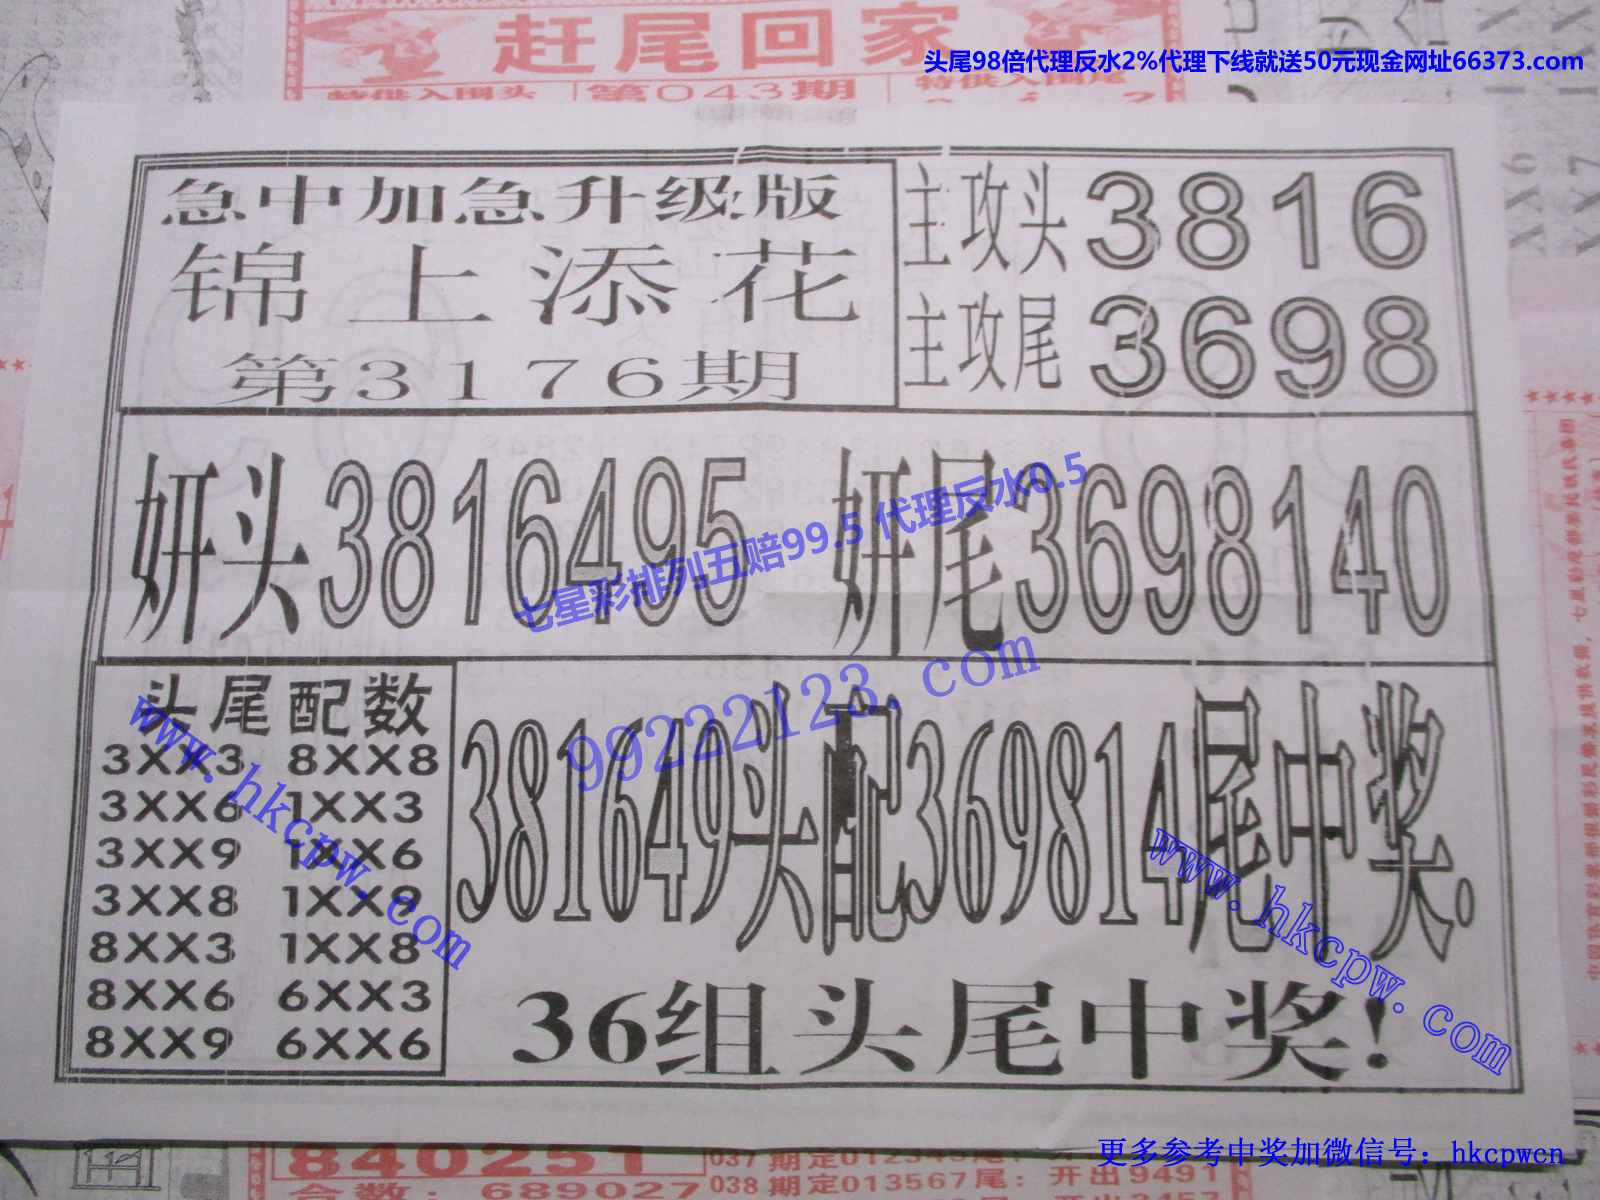 赶尾回家
头尾98倍代理反水2%代理下线就送50元现金网址66373.com
特供入围头
第043期
特供入围尾
XX6
XX7
急中加急升级版
锦上添花
第3176期
主攻头3816
主攻尾3698
妍头3816495
妍尾3698140
七星彩排列五赔99.5 代理反水0.5
99222123.com
头尾配数
3XX3 8XX8
3XX6 1XX3
3XX9 1XX6
3XX8 1XX9
8XX3 1XX8
8XX6 6XX3
8XX9 6XX6
www.hkcpw.com
381649头配369814尾中奖.
www.hkcpw.com
36组头尾中奖!
840251
合数:689027
037期定012345尾:
038期定013567尾:开出9491
更多参考中奖加微信号：hkcpwcn